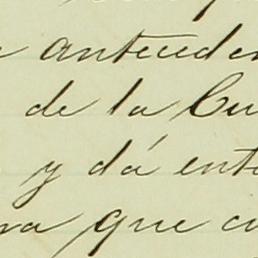 anteceden
de la Cu
y dá ent
ra que cu